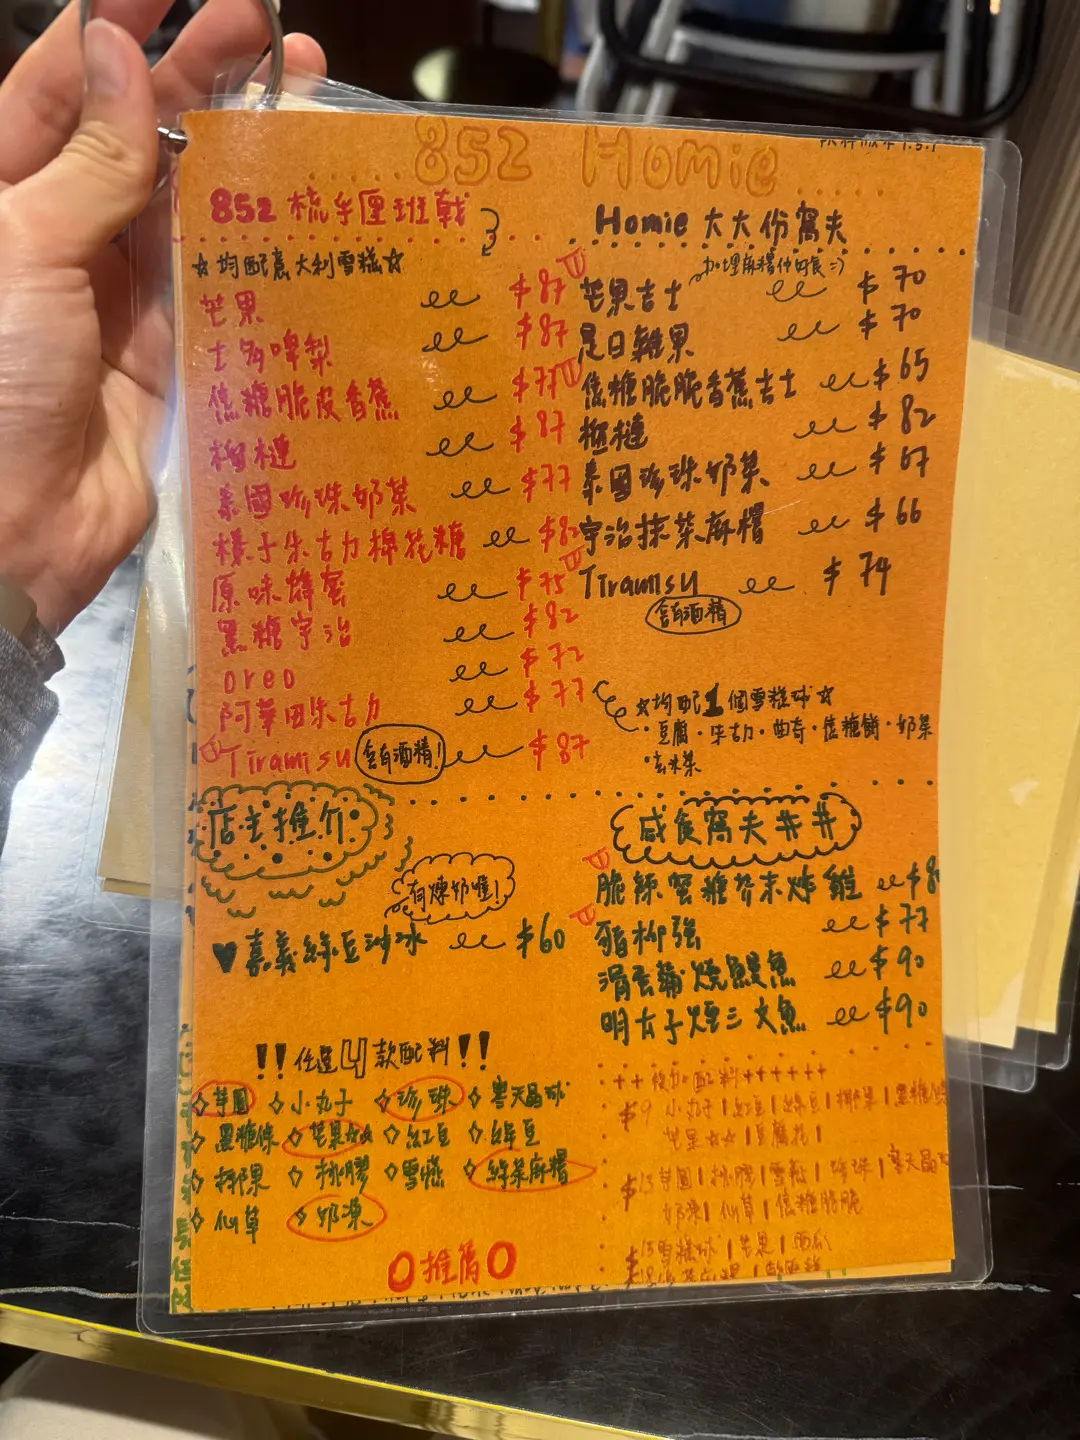 852 Homie
852 梳乎厘班戟
☆均配意大利雪糕☆
芒果 $87
士多啤梨 $87
焦糖脆皮香蕉 $77
榴槤 $87
泰國珍珠奶茶 $77
榛子朱古力棉花糖 $82
原味蜂蜜 $75
黑糖宇治 $82
oreo $72
阿華田朱古力 $77
Tiramisu 含有酒精! $87
Homie 大大份窩夫
加埋麻糬仲好食=)
芒果吉士 $70
是日雜果 $70
焦糖脆脆香蕉吉士 $65
榴槤 $82
泰國珍珠奶茶 $67
宇治抹茶麻糬 $66
Tiramisu $74
含有酒精
☆均配1個雪糕球☆
·豆腐·朱古力·曲奇·焦糖餅·奶茶
·玄米茶
店主推介
有煉奶喔!
♥嘉義綠豆沙冰 $60
!!任選4款配料!!
◇芋圓 ◇小丸子 ◇珍珠 ◇寒天晶球
◇黑糖條 ◇芒果☆☆ ◇紅豆 ◇綠豆
◇椰果 ◇桃膠 ◇雪燕 ◇綠茶麻糬
◇仙草 ◇奶凍
O推薦O
咸食窩夫井井
脆辣蜜糖芥末炸雞
豬柳強 $77
滑蛋鋪燒鰻魚 $90
明太子煙三文魚 $90
++後加配料++++++
$9 小丸子|紅豆|綠豆|椰果|黑糖條
芒果☆☆|豆腐花|
$13芋圓|桃膠|雪燕|珍珠|寒天晶球
奶凍|仙草|焦糖脆脆
$15雪糕球|芒果|西瓜